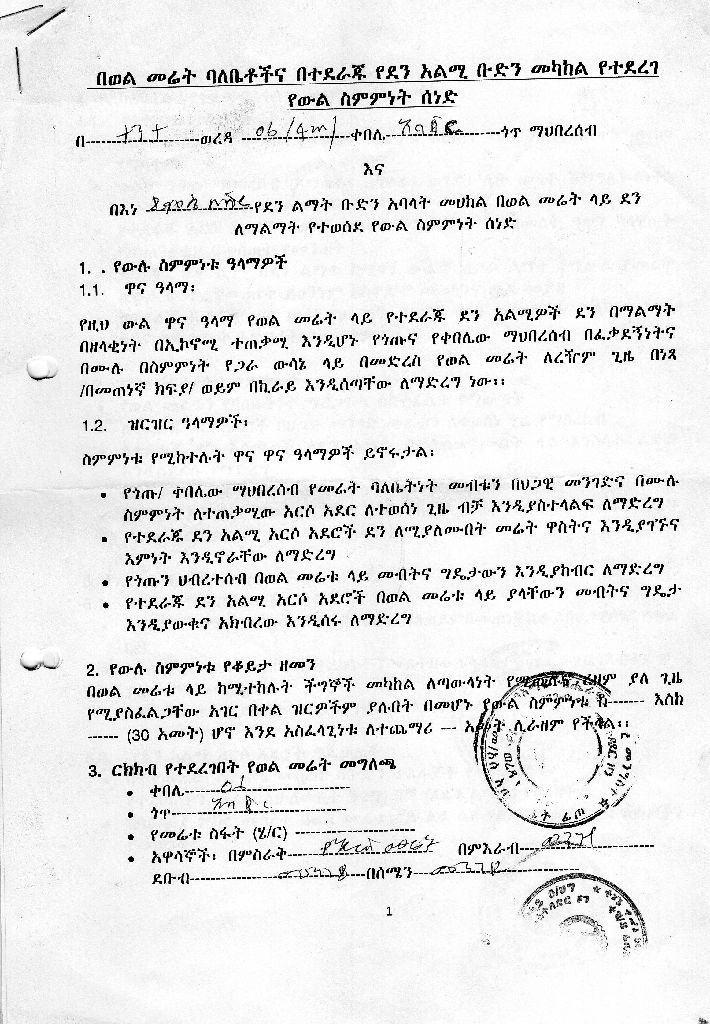 በወል መሬት ባለቤቶችና በተደራጁ የደን አልሚ ቡድን መካከል የተደረገ
የውል ስምምነት ሰነድ
በ--------ወረዳ --------ቀበሌ--------ጎጥ ማህበረሰብ
እና
በእነ --------የደን ልማት ቡድን አባላት መሀከል በወል መሬት ላይ ደን
ለማልማት የተወሰደ የውል ስምምነት ሰነድ
1. . የውሉ ስምምነቱ ዓላማዎች
1.1. ዋና ዓላማ፡
የዚህ ውል ዋና ዓላማ የወል መሬት ላይ የተደራጁ ደን አልሚዎች ደን በማልማት
በዘላቂነት በኢኮኖሚ ተጠቃሚ እንዲሆኑ የጎጡና የቀበሌው ማህበረሰብ በፈቃደኝነትና
በሙሉ በስምምነት የጋራ ውሳኔ ላይ በመድረስ የወል መሬት ለረዥም ጊዜ በነጻ
/በመጠነኛ ክፍያ/ ወይም በኪራይ እንዲሰጣቸው ለማድረግ ነው፡፡
1.2. ዝርዝር ዓላማዎች፡
ስምምነቱ የሚከተሉት ዋና ዋና ዓላማዎች ይኖሩታል፡
• የጎጡ/ ቀበሌው ማህበረሰብ የመሬት ባለቤትነት መብቱን በህጋዊ መንገድና በሙሉ
ስምምነት ለተጠቃሚው አርሶ አደር ለተወሰነ ጊዜ ብቻ እንዲያስተላልፍ ለማድረግ
• የተደራጁ ደን አልሚ አርሶ አደሮች ደን ለሚያለሙበት መሬት ዋስትና እንዲያገኙና
እምነት እንዲኖራቸው ለማድረግ
• የጎጡን ህብረተሰብ በወል መሬቱ ላይ መብትና ግዴታውን እንዲያከብር ለማድረግ
• የተደራጁ ደን አልሚ አርሶ አደሮች በወል መሬቱ ላይ ያላቸውን መብትና ግዴታ
እንዲያውቁና አክብረው እንዲሰሩ ለማድረግ
2. የውሉ ስምምነቱ የቆይታ ዘመን
በወል መሬቱ ላይ ከሚተከሉት ችግኞች መካከል ለጣውላነት የሚውሉት ረዘም ያለ ጊዜ
የሚያስፈልጋቸው አገር በቀል ዝርዎችም ያሉበት በመሆኑ የውል ስምምነቱ ከ------ እስከ
------ (30 አመት) ሆኖ እንደ አስፈላጊነቱ ለተጨማሪ --- አመት ሊራዘም የችላል፡፡
3. ርክክብ የተደረገበት የወል መሬት መግለጫ
• ቀበሌ--------
• ጎጥ --------
• የመሬቱ ስፋት (ሄ/ር) --------
• አዋሳኞች፡ በምስራቅ-------- በምእራብ--------
ደቡብ--------በሰሜን--------
1